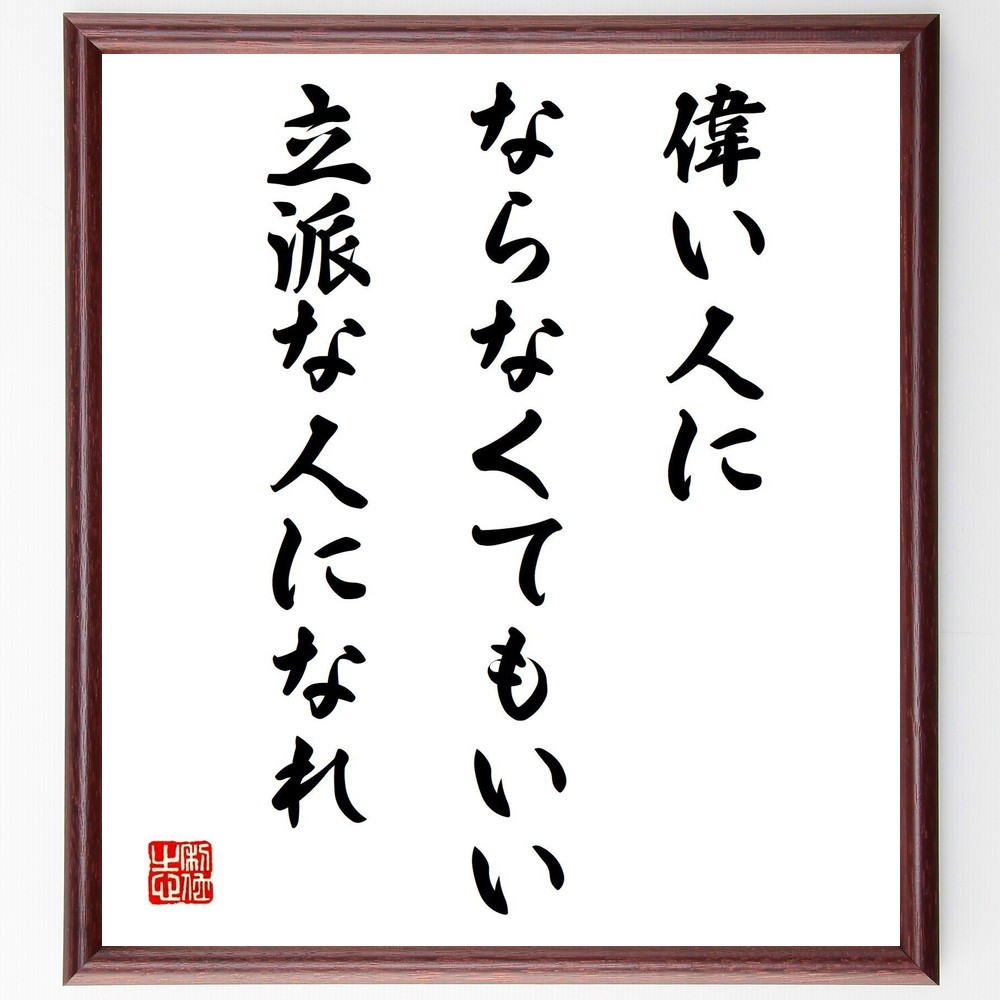 偉い人に
ならなくてもいい
立派な人になれ